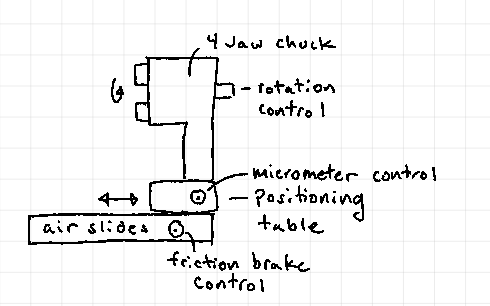 4 Jaw chuck
rotation
control
micrometer control
positioning
table
air slides
friction brake
control